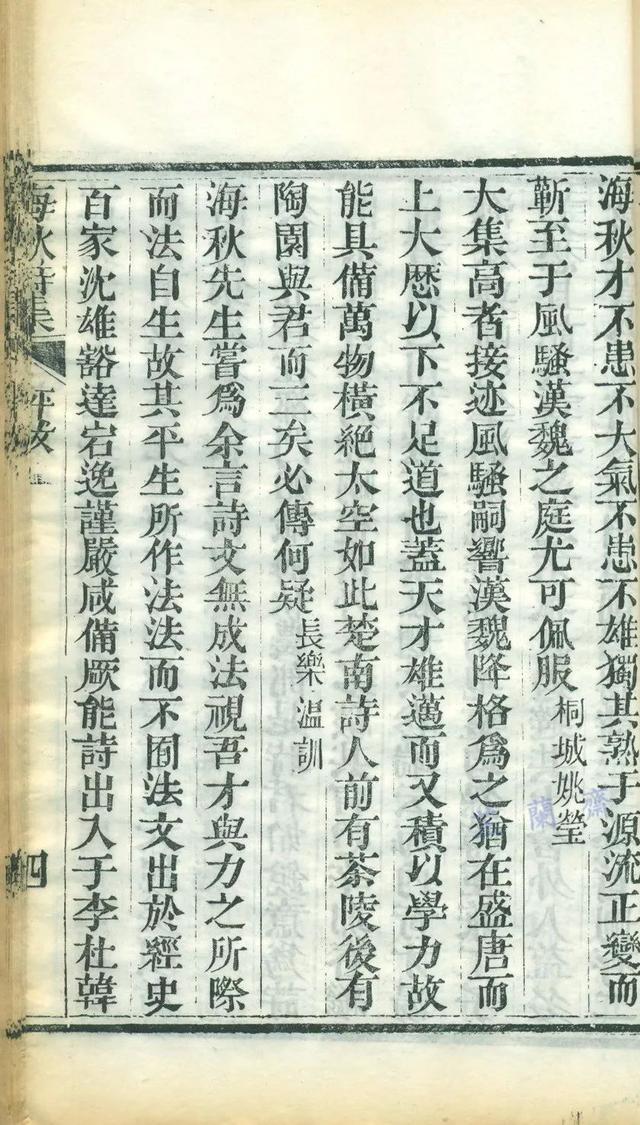 海秋才不患不大氣不患不雄獨其熟于源流正變而
蘄至于風騷漢魏之庭尤可佩服 桐城姚瑩
大集高者接迹風騷嗣響漢魏降格爲之猶在盛唐而
上大歷以下不足道也蓋天才雄邁而又積以學力故
能具備萬物橫絕太空如此楚南詩人前有茶陵後有
陶園與君而三矣必傳何疑 長樂溫訓
海秋先生嘗爲余言詩文無成法視吾才與力之所際
而法自生故其平生所作法法而不囿法文出於經史
百家沈雄豁達宕逸謹嚴咸備厥能詩出入于李杜韓
海秋詩集 評跋 四
蘭齋